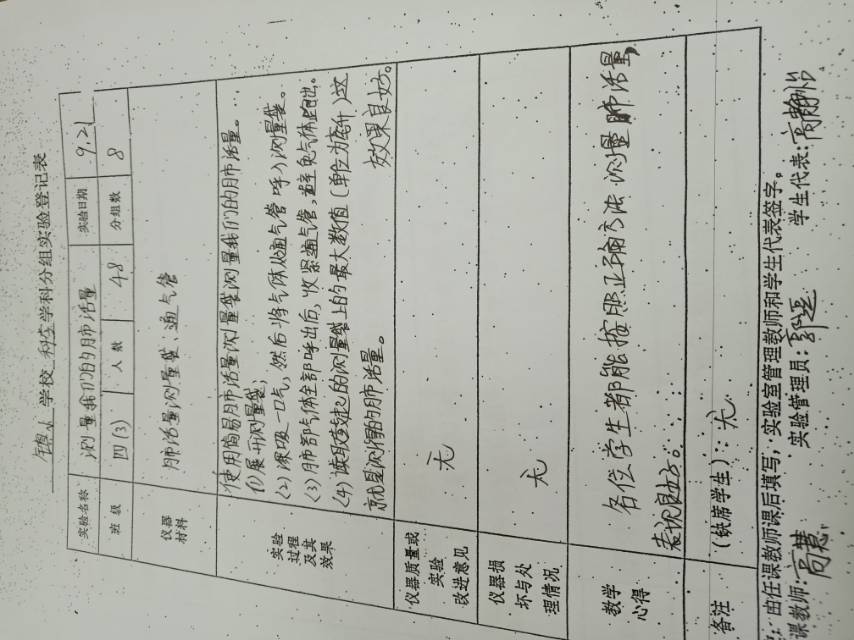 学校 科学 学科分组实验登记表
实验名称 测量我们的肺活量 实验日期 9.21
班级 四(3) 人数 48 分组数 8
仪器材料 肺活量测量袋、通气管
实验过程及其效果
使用简易肺活量测量袋测量我们的肺活量。
(1)展开测量袋;
(2)深吸一口气,然后将气体从通气管呼入测量袋。
(3)肺部气体全部呼出后,收紧通气管,避免气体跑出。
(4)读取测量袋上的最大数值(单位为毫升)这
就是测得的肺活量。 效果良好。
仪器质量或实验改进意见 无
仪器损坏与处理情况 无
教学心得 各位学生都能按照正确方法测量肺活量,
表现良好。
备注 (缺席学生):无
由任课教师课后填写,实验室管理教师和学生代表签字。
课教师:高慧 实验管理员: 学生代表: